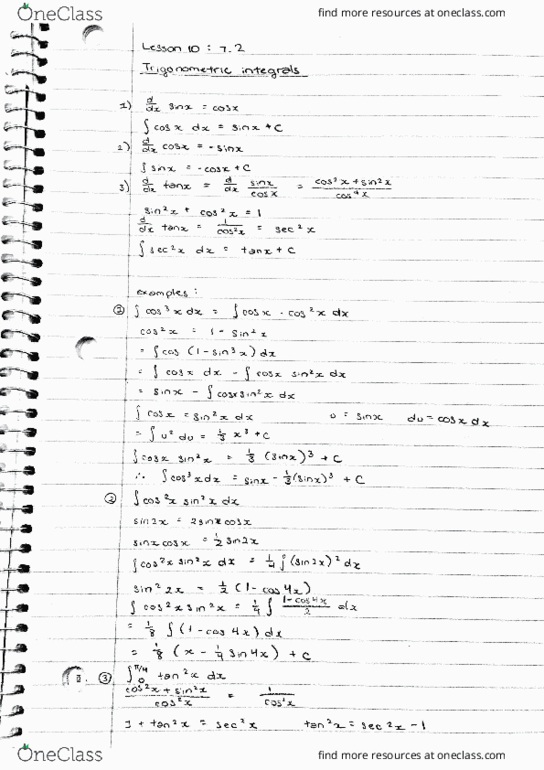 OneClass find more resources at oneclass.com
Lesson 10 : 7.2
Trigonometric integrals
1) d/dx sinx = cosx
∫ cosx dx = sinx + C
2) d/dx cosx = -sinx
∫ sinx = -cosx + C
3) d/dx tanx = d/dx sinx/cosx = cos²x + sin²x / cos⁴x
sin²x + cos²x = 1
d/dx tanx = 1/cos²x = sec²x
∫ sec²x dx = tanx + C
examples :
② ∫ cos³x dx = ∫ cosx · cos²x dx
cos²x = 1 - sin²x
= ∫ cos (1 - sin³x) dx
= ∫ cosx dx - ∫ cosx sin²x dx
= sinx - ∫ cosxsin²x dx
∫ cosx = sin²x dx u = sinx du = cosx dx
= ∫ u² du = 1/3 x³ + C
∫ cosx sin²x = 1/3 (sinx)³ + C
∴ ∫ cos³xdx = sinx - 1/3(sinx)³ + C
② ∫ cos²x sin²x dx
sin2x = 2sinxcosx
sinxcosx = 1/2 sin2x
∫ cos²x sin²x dx = 1/4 ∫ (sin2x)² dx
sin²2x = 1/2 (1 - cos4x)
∫ cos²x sin²x = 1/4 ∫ 1-cos4x/2 dx
= 1/8 ∫ (1 - cos4x) dx
= 1/8 (x - 1/4 sin4x) + C
③ ∫₀^π/4 tan²x dx
cos²x + sin²x / cos²x = 1/cos²x
1 + tan²x = sec²x tan²x = sec²x - 1
OneClass find more resources at oneclass.com